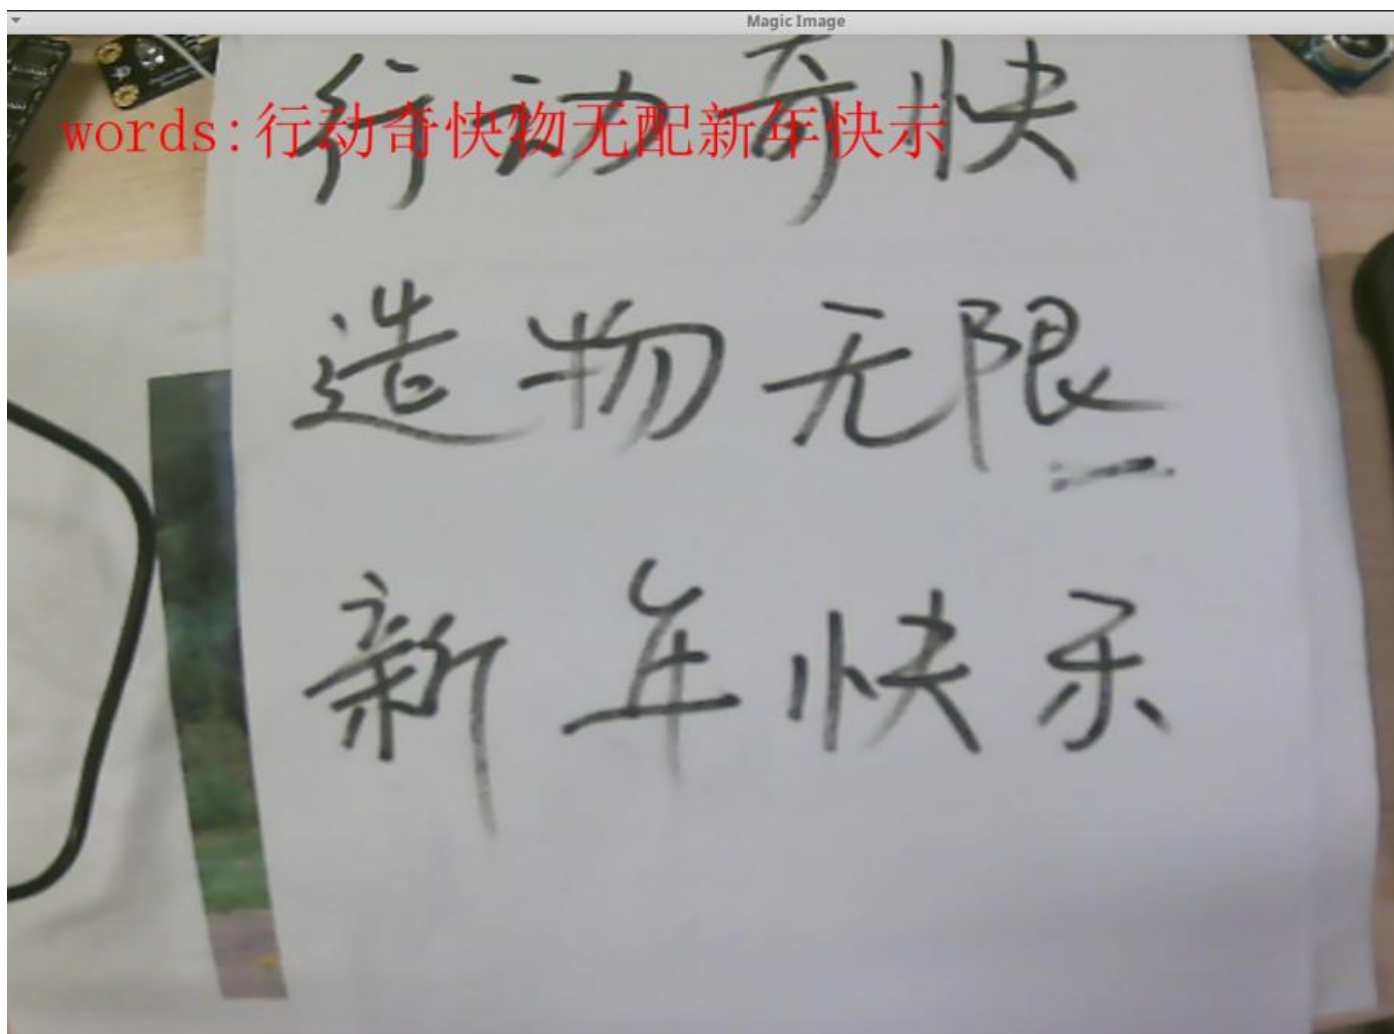 Magic Image
words:行动奇快物无配新年快示
行动奇快
造物无限
新年快乐